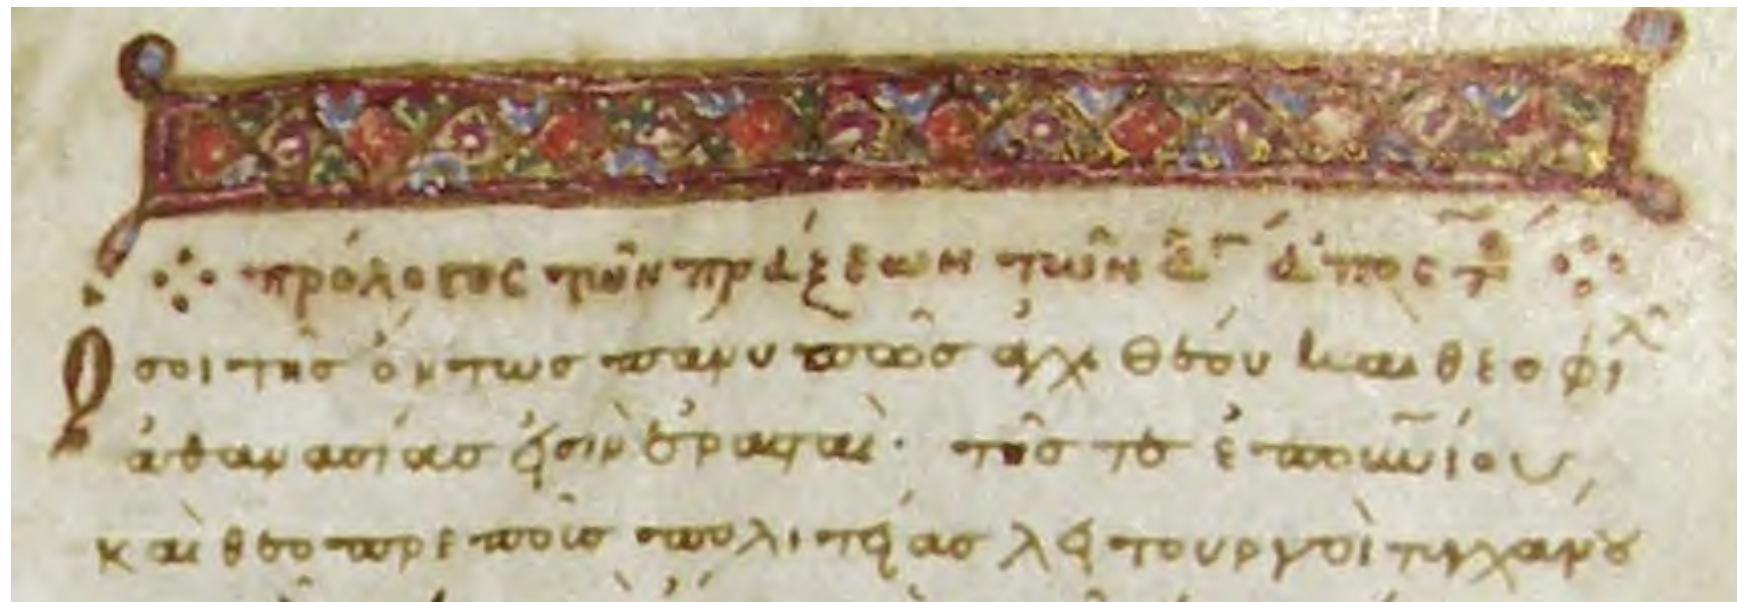 πρόλογος τῶν πράξεων τῶν ἁγ ἀποστο
Ὅσοι τῆς ὄντως πάνυ πως ἀγχιθέου καὶ θεοφιλ
ἀθανασίας εἰσὶν ἐρασταὶ· τῆς τε ἐπουνίου
καὶ θεοπρεποῦς πολιτείας λειτουργοὶ τυγχάνου